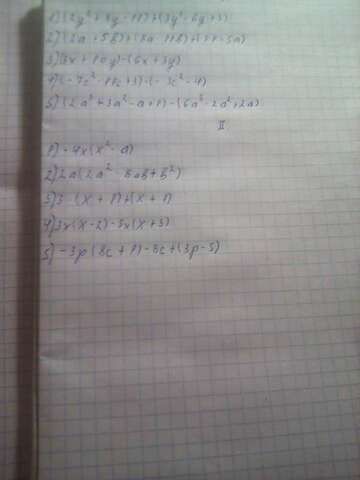 1) (2y² + 8y - 11) + (3y² - 6y + 3)
2) (2a + 5b) + (8a - 11b) + (11 - 5a)
3) (8x + 10y) - (6x + 3y)
4) (-7c² - 11c + 3) - (-3c² - 4)
5) (2a³ + 3a² - a + 1) - (6a³ - 2a² + 2a)
II
1) - 4x(x² - a)
2) 2a(2a² - 8ab + b²)
3) 3 (x + 1) + (x + 1)
4) 3x(x - 2) - 5x(x + 3)
5) - 3p(8c + 1) - 8c + (3p - 5)